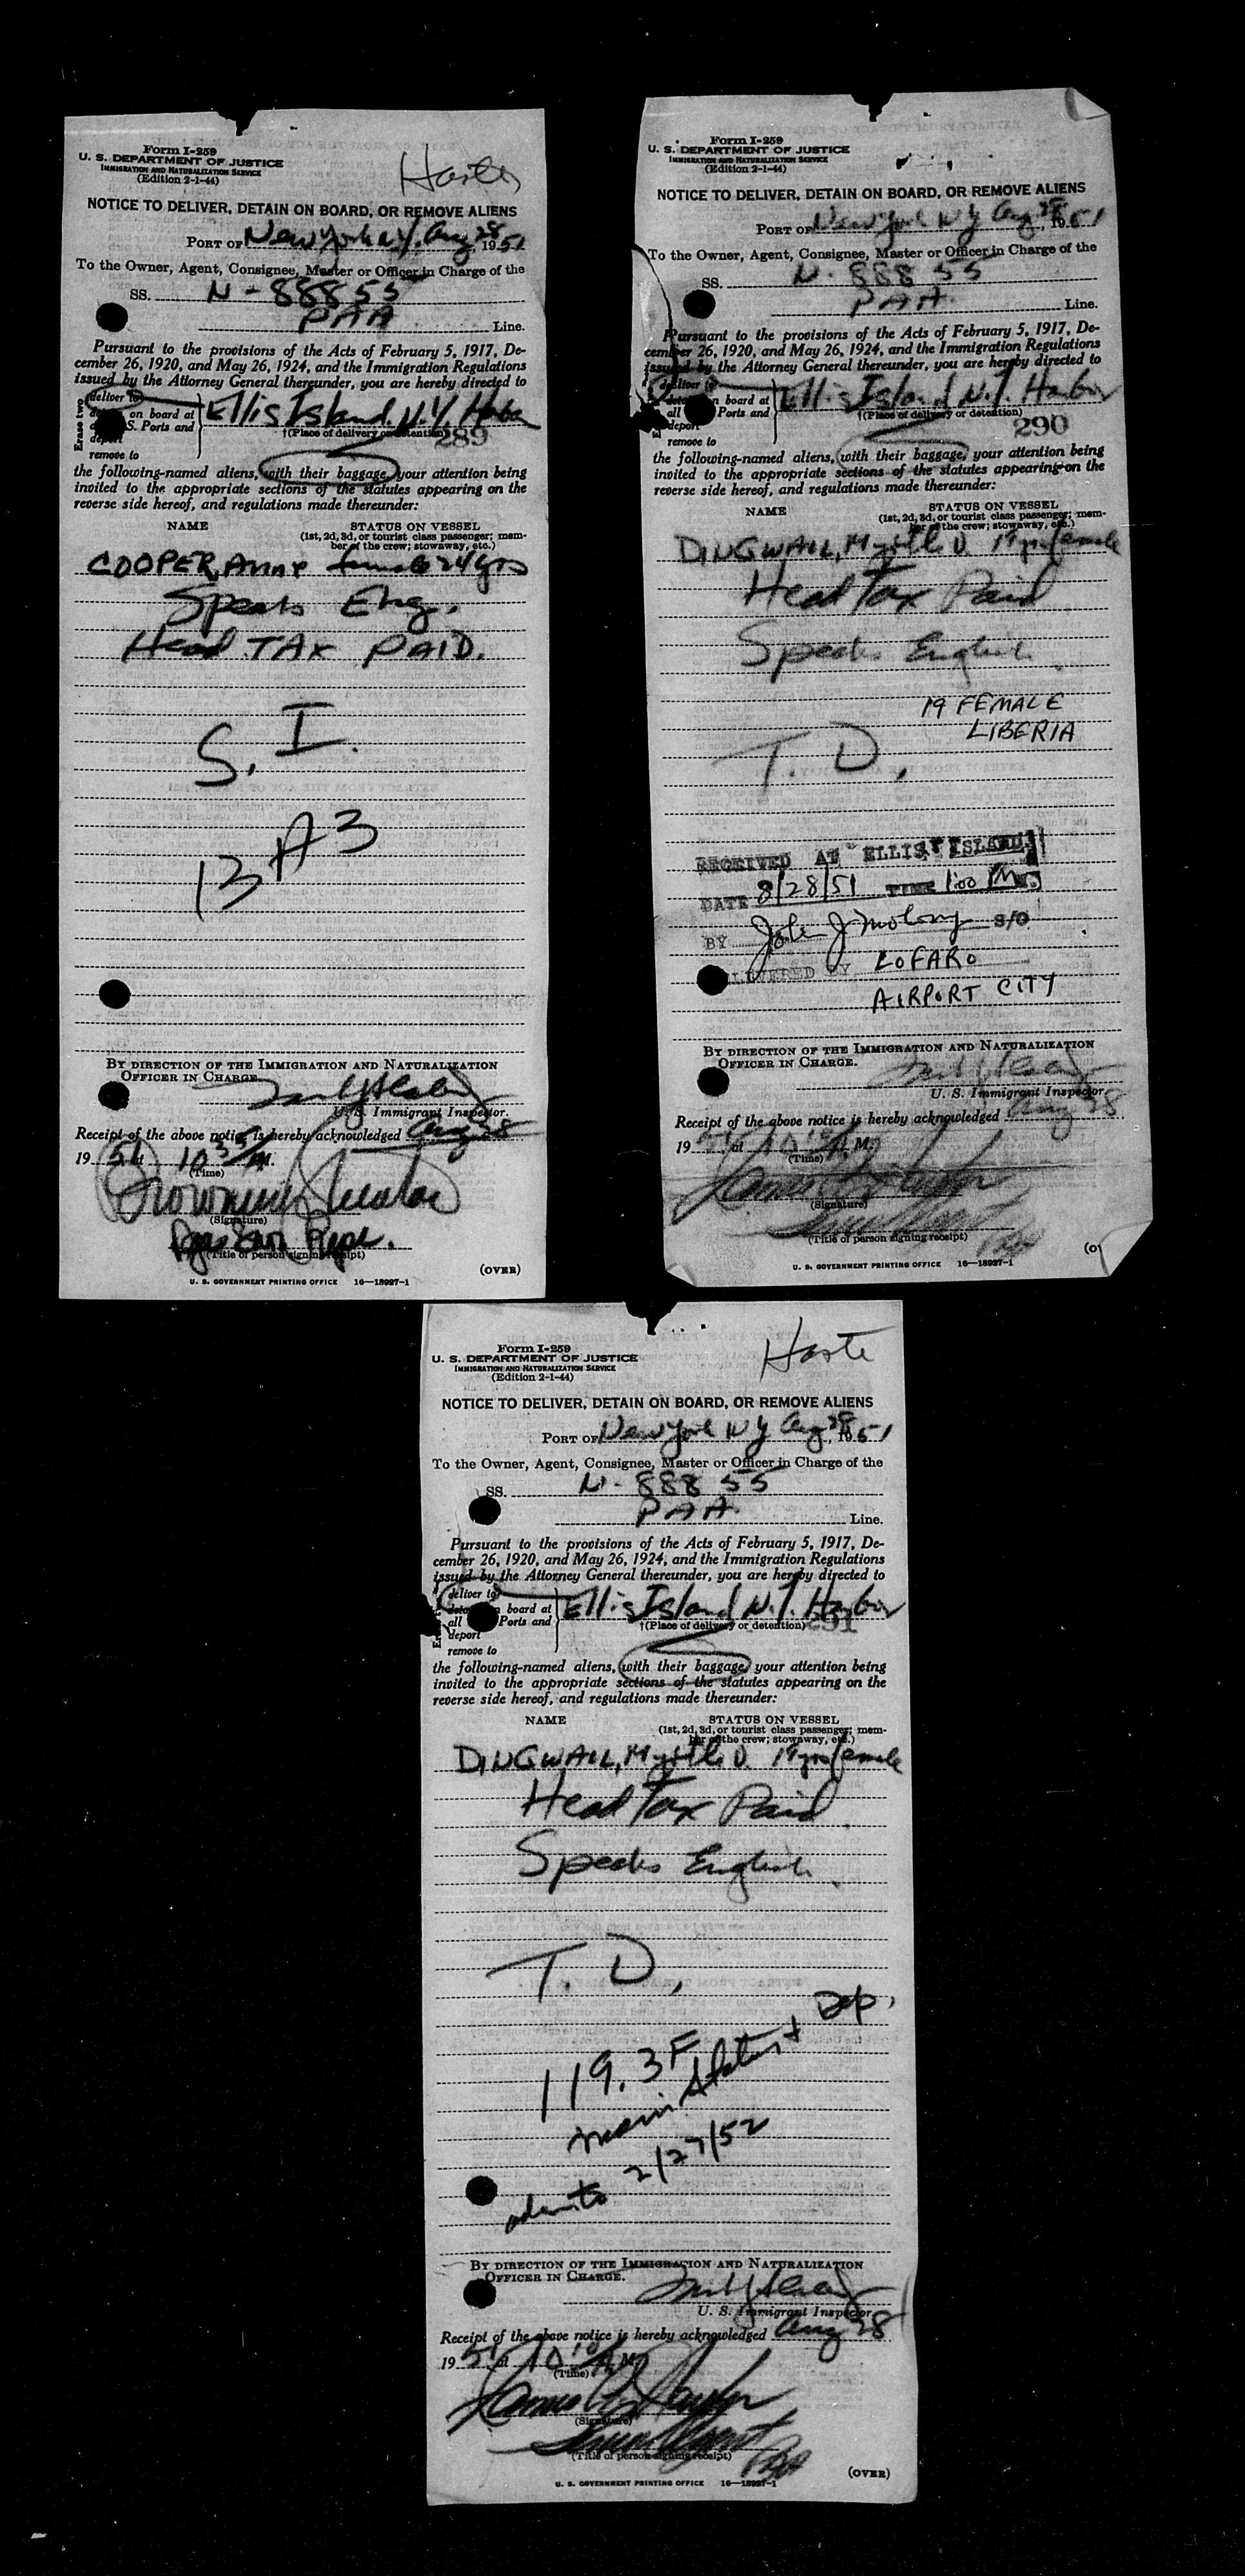 Form I-259
U. S. DEPARTMENT OF JUSTICE
IMMIGRATION AND NATURALIZATION SERVICE
(Edition 2-1-44)
NOTICE TO DELIVER, DETAIN ON BOARD, OR REMOVE ALIENS
PORT OF New York N.Y. Aug 28, 1951
To the Owner, Agent, Consignee, Master or Officer in Charge of the
SS. N-88855
PAA Line.
Pursuant to the provisions of the Acts of February 5, 1917, De-
cember 26, 1920, and May 26, 1924, and the Immigration Regulations
issued by the Attorney General thereunder, you are hereby directed to
Erase two
deliver to
on board at
S. Ports and
remove to
Ellis Island N.Y. Harbor
†(Place of delivery or detention)
289
the following-named aliens, with their baggage, your attention being
invited to the appropriate sections of the statutes appearing on the
reverse side hereof, and regulations made thereunder:
NAME STATUS ON VESSEL
(1st, 2d, 3d, or tourist class passenger; mem-
ber of the crew; stowaway, etc.)
COOPER, female 24 yrs
Speaks Eng.
Head TAX PAID.
S. I.
13 A3
BY DIRECTION OF THE IMMIGRATION AND NATURALIZATION
OFFICER IN CHARGE.
U. S. Immigrant Inspector.
Receipt of the above notice is hereby acknowledged Aug 28
1951 at 10 M.
(Time)
(Signature)
(Title of person signing receipt)
(OVER)
U. S. GOVERNMENT PRINTING OFFICE 16—18927-1
Form I-259
U. S. DEPARTMENT OF JUSTICE
IMMIGRATION AND NATURALIZATION SERVICE
(Edition 2-1-44)
NOTICE TO DELIVER, DETAIN ON BOARD, OR REMOVE ALIENS
PORT OF New York N Y Aug 28, 1951
To the Owner, Agent, Consignee, Master or Officer in Charge of the
SS. N-88855
PAA Line.
Pursuant to the provisions of the Acts of February 5, 1917, De-
cember 26, 1920, and May 26, 1924, and the Immigration Regulations
issued by the Attorney General thereunder, you are hereby directed to
deliver to
board at
all Ports and
deport
remove to
Ellis Island N.Y. Harbor
†(Place of delivery or detention)
290
the following-named aliens, with their baggage, your attention being
invited to the appropriate sections of the statutes appearing on the
reverse side hereof, and regulations made thereunder:
NAME STATUS ON VESSEL
(1st, 2d, 3d, or tourist class passenger; mem-
ber of the crew; stowaway, etc.)
DINGWALL, Myrtle D. 19 yrs female
Head Tax Paid
Speaks English
19 FEMALE
LIBERIA
T. D.
RECEIVED AT ELLIS ISLAND
DATE 8/28/51 TIME 1:00 PM
BY John J S/O
DELIVERED BY LOFARO
AIRPORT CITY
BY DIRECTION OF THE IMMIGRATION AND NATURALIZATION
OFFICER IN CHARGE.
U. S. Immigrant Inspector.
Receipt of the above notice is hereby acknowledged Aug 28
1951 at 10 A M.
(Time)
(Signature)
(Title of person signing receipt)
(O
U. S. GOVERNMENT PRINTING OFFICE 16—18927-1
Form I-259
U. S. DEPARTMENT OF JUSTICE
IMMIGRATION AND NATURALIZATION SERVICE
(Edition 2-1-44)
NOTICE TO DELIVER, DETAIN ON BOARD, OR REMOVE ALIENS
PORT OF New York N Y Aug 28, 1951
To the Owner, Agent, Consignee, Master or Officer in Charge of the
SS. N-88855
PAA Line.
Pursuant to the provisions of the Acts of February 5, 1917, De-
cember 26, 1920, and May 26, 1924, and the Immigration Regulations
issued by the Attorney General thereunder, you are hereby directed to
deliver to
board at
all Ports and
deport
remove to
Ellis Island N.Y. Harbor
†(Place of delivery or detention)
291
the following-named aliens, with their baggage, your attention being
invited to the appropriate sections of the statutes appearing on the
reverse side hereof, and regulations made thereunder:
NAME STATUS ON VESSEL
(1st, 2d, 3d, or tourist class passenger; mem-
ber of the crew; stowaway, etc.)
DINGWALL, Myrtle D. 19 yrs female
Head Tax Paid
Speaks English
T. D.
119.3F
Status + Dep.
2/27/52
BY DIRECTION OF THE IMMIGRATION AND NATURALIZATION
OFFICER IN CHARGE.
U. S. Immigrant Inspector.
Receipt of the above notice is hereby acknowledged Aug 28
1951 at 10 A M.
(Time)
(Signature)
(Title of person signing receipt)
(OVER)
U. S. GOVERNMENT PRINTING OFFICE 16—18927-1